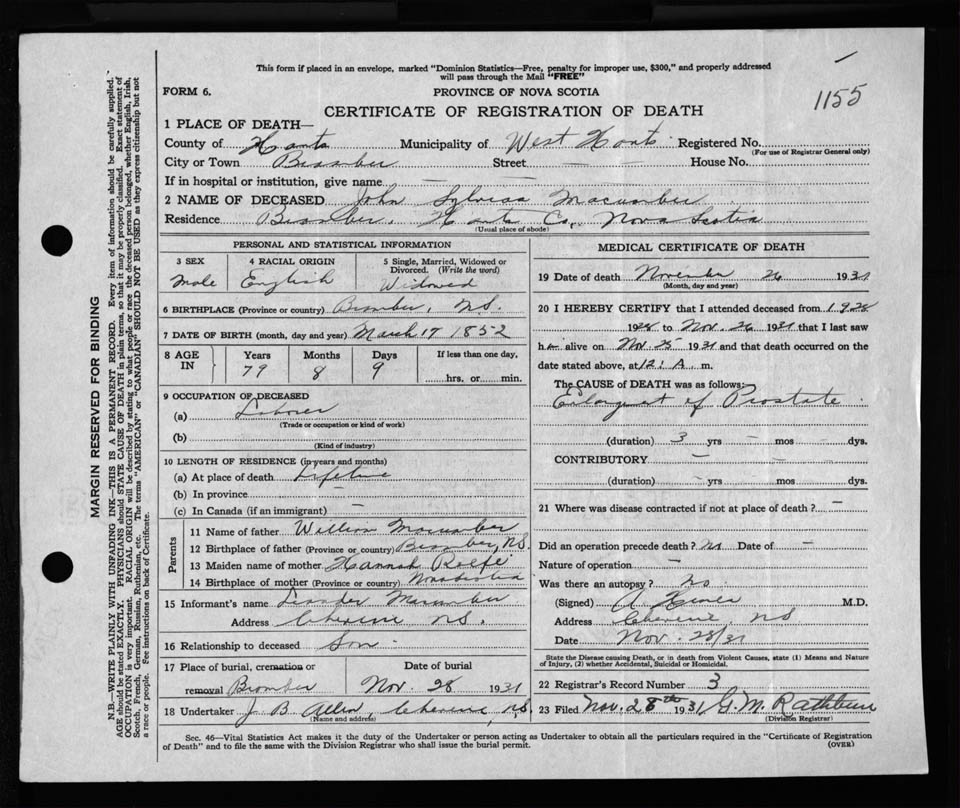 This form if placed in an envelope, marked "Dominion Statistics—Free, penalty for improper use, $300," and properly addressed
will pass through the Mail "FREE"
1155
FORM 6. PROVINCE OF NOVA SCOTIA
CERTIFICATE OF REGISTRATION OF DEATH
1 PLACE OF DEATH—
County of Hants Municipality of West Hants Registered No.
(For use of Registrar General only)
City or Town Street — — House No.
If in hospital or institution, give name — —
2 NAME OF DECEASED John Macumber
Residence Hants Co, Nova Scotia
(Usual place of abode)
PERSONAL AND STATISTICAL INFORMATION
3 SEX 4 RACIAL ORIGIN 5 Single, Married, Widowed or
Divorced. (Write the word)
Male English Widowed
6 BIRTHPLACE (Province or country) N.S.
7 DATE OF BIRTH (month, day and year) March 17 1852
8 AGE IN Years Months Days If less than one day,
79 8 9 hrs. or min.
9 OCCUPATION OF DECEASED
(a) Laborer
(Trade or occupation or kind of work)
(b)
(Kind of industry)
10 LENGTH OF RESIDENCE (in years and months)
(a) At place of death Lifetime
(b) In province —
(c) In Canada (if an immigrant) —
Parents
11 Name of father William Macumber
12 Birthplace of father (Province or country) N.S.
13 Maiden name of mother Hannah Rolfe
14 Birthplace of mother (Province or country) Nova Scotia
15 Informant's name Leander Macumber
Address N.S.
16 Relationship to deceased Son
17 Place of burial, cremation or Date of burial
removal Nov. 28 1931
18 Undertaker J. B. Allen, N.S.
(Name and address)
MEDICAL CERTIFICATE OF DEATH
19 Date of death November 26 1931
(Month, day and year)
20 I HEREBY CERTIFY that I attended deceased from 1928
1928 to Nov. 26 1931 that I last saw
h alive on Nov 25 1931 and that death occurred on the
date stated above, at 12 A m.
The CAUSE of DEATH was as follows:
Enlargement of Prostate
(duration) 3 yrs — mos — dys.
CONTRIBUTORY —
(duration) — yrs — mos dys.
21 Where was disease contracted if not at place of death? —
Did an operation precede death? No Date of —
Nature of operation —
Was there an autopsy? No
(Signed) M.D.
Address N.S.
Date Nov. 28/31
State the Disease causing Death, or in death from Violent Causes, state (1) Means and Nature
of Injury, (2) whether Accidental, Suicidal or Homicidal.
22 Registrar's Record Number 3
23 Filed Nov. 28th 1931 G. M. Rathbun
(Division Registrar)
Sec. 46—Vital Statistics Act makes it the duty of the Undertaker or person acting as Undertaker to obtain all the particulars required in the "Certificate of Registration
of Death" and to file the same with the Division Registrar who shall issue the burial permit. (OVER)
MARGIN RESERVED FOR BINDING
N.B.—WRITE PLAINLY WITH UNFADING INK—THIS IS A PERMANENT RECORD. Every item of information should be carefully supplied.
AGE should be stated EXACTLY. PHYSICIANS should STATE CAUSE OF DEATH in plain terms, so that it may be properly classified. Exact statement of
OCCUPATION is very important. RACIAL ORIGIN will be described by stating to what people or race the deceased person belonged, whether English, Irish,
Scotch, French, German, Russian, Ruthenian, etc. The terms "AMERICAN" or "CANADIAN" SHOULD NOT BE USED as they express citizenship but not
a race or people. See instructions on back of Certificate.